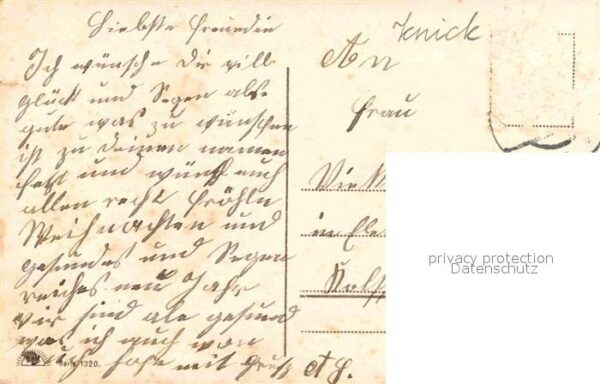 Liebste Freundin
Ich wünsche Dir vill
glück und Segen alles
gute was zu wünschen
ist zu deinen namen
fest und wünsch euch
allen recht fröhle
Weihnachten und
gesundes und Segen
reiches neu Jahr
wir sind ale gesund
was ich auch von
euch hofe mit Gruß
A G.
Knick
An
Frau
in
privacy protection
Datenschutz
Serie 1320.